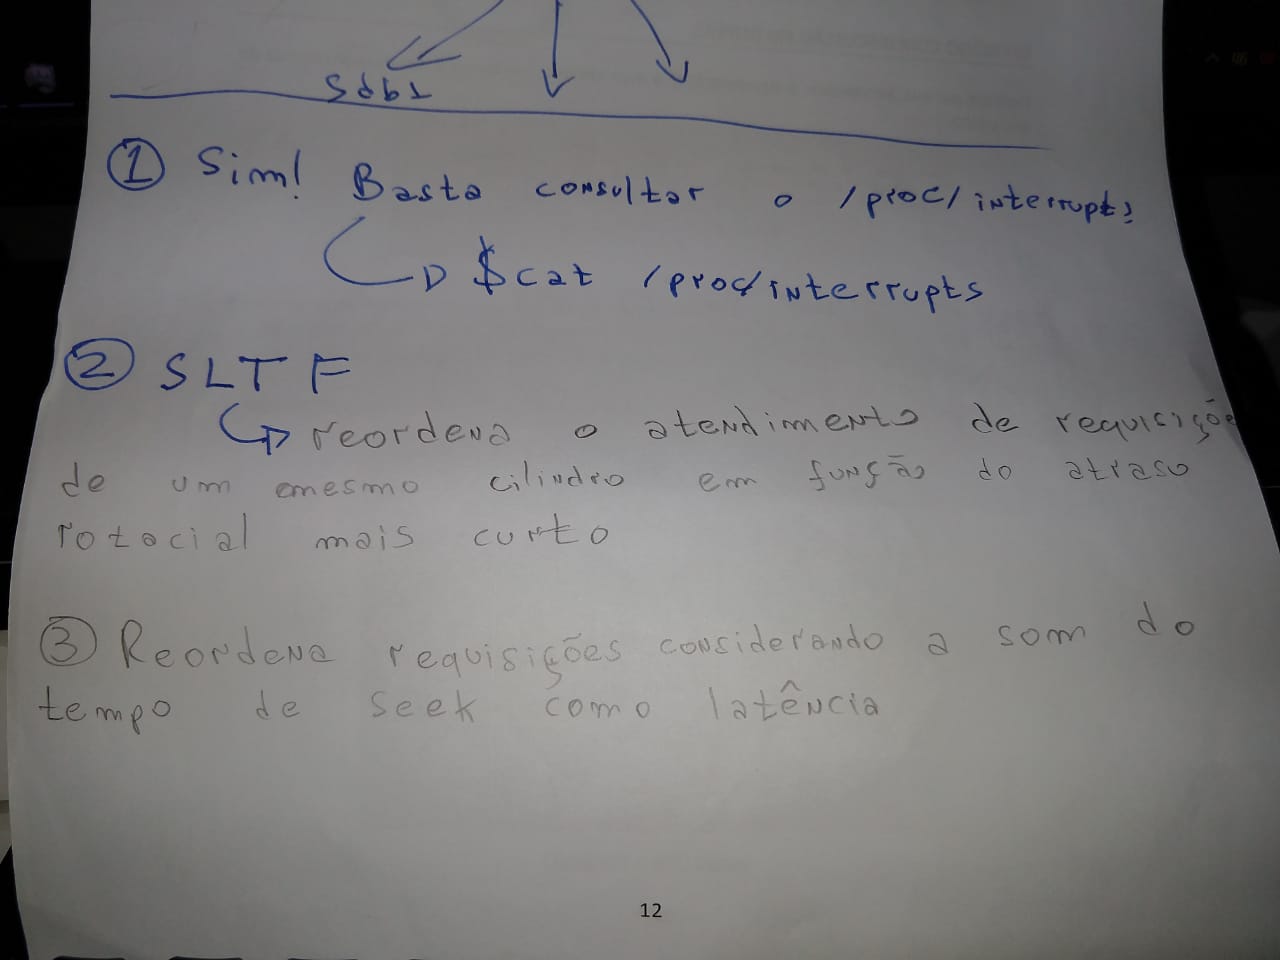 sdb1
1 Sim! Basta consultar o /proc/interrupts
$cat /proc/interrupts
2 SLTF
reordena o atendimento de requisiçõe
de um mesmo cilindro em função do atraso
rotacial mais curto
3 Reordena requisições considerando a som do
tempo de seek como latência
12